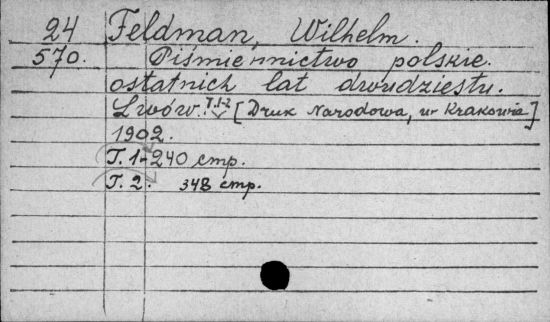 24 Feldman, Wilhelm.
570. Piśmiennictwo polskie
ostatnich lat dwudziestu.
Lwów. T.1-2 [Druk Narodowa, w Krakowia]
1902.
T. 1-240 стр.
T. 2. 348 стр.